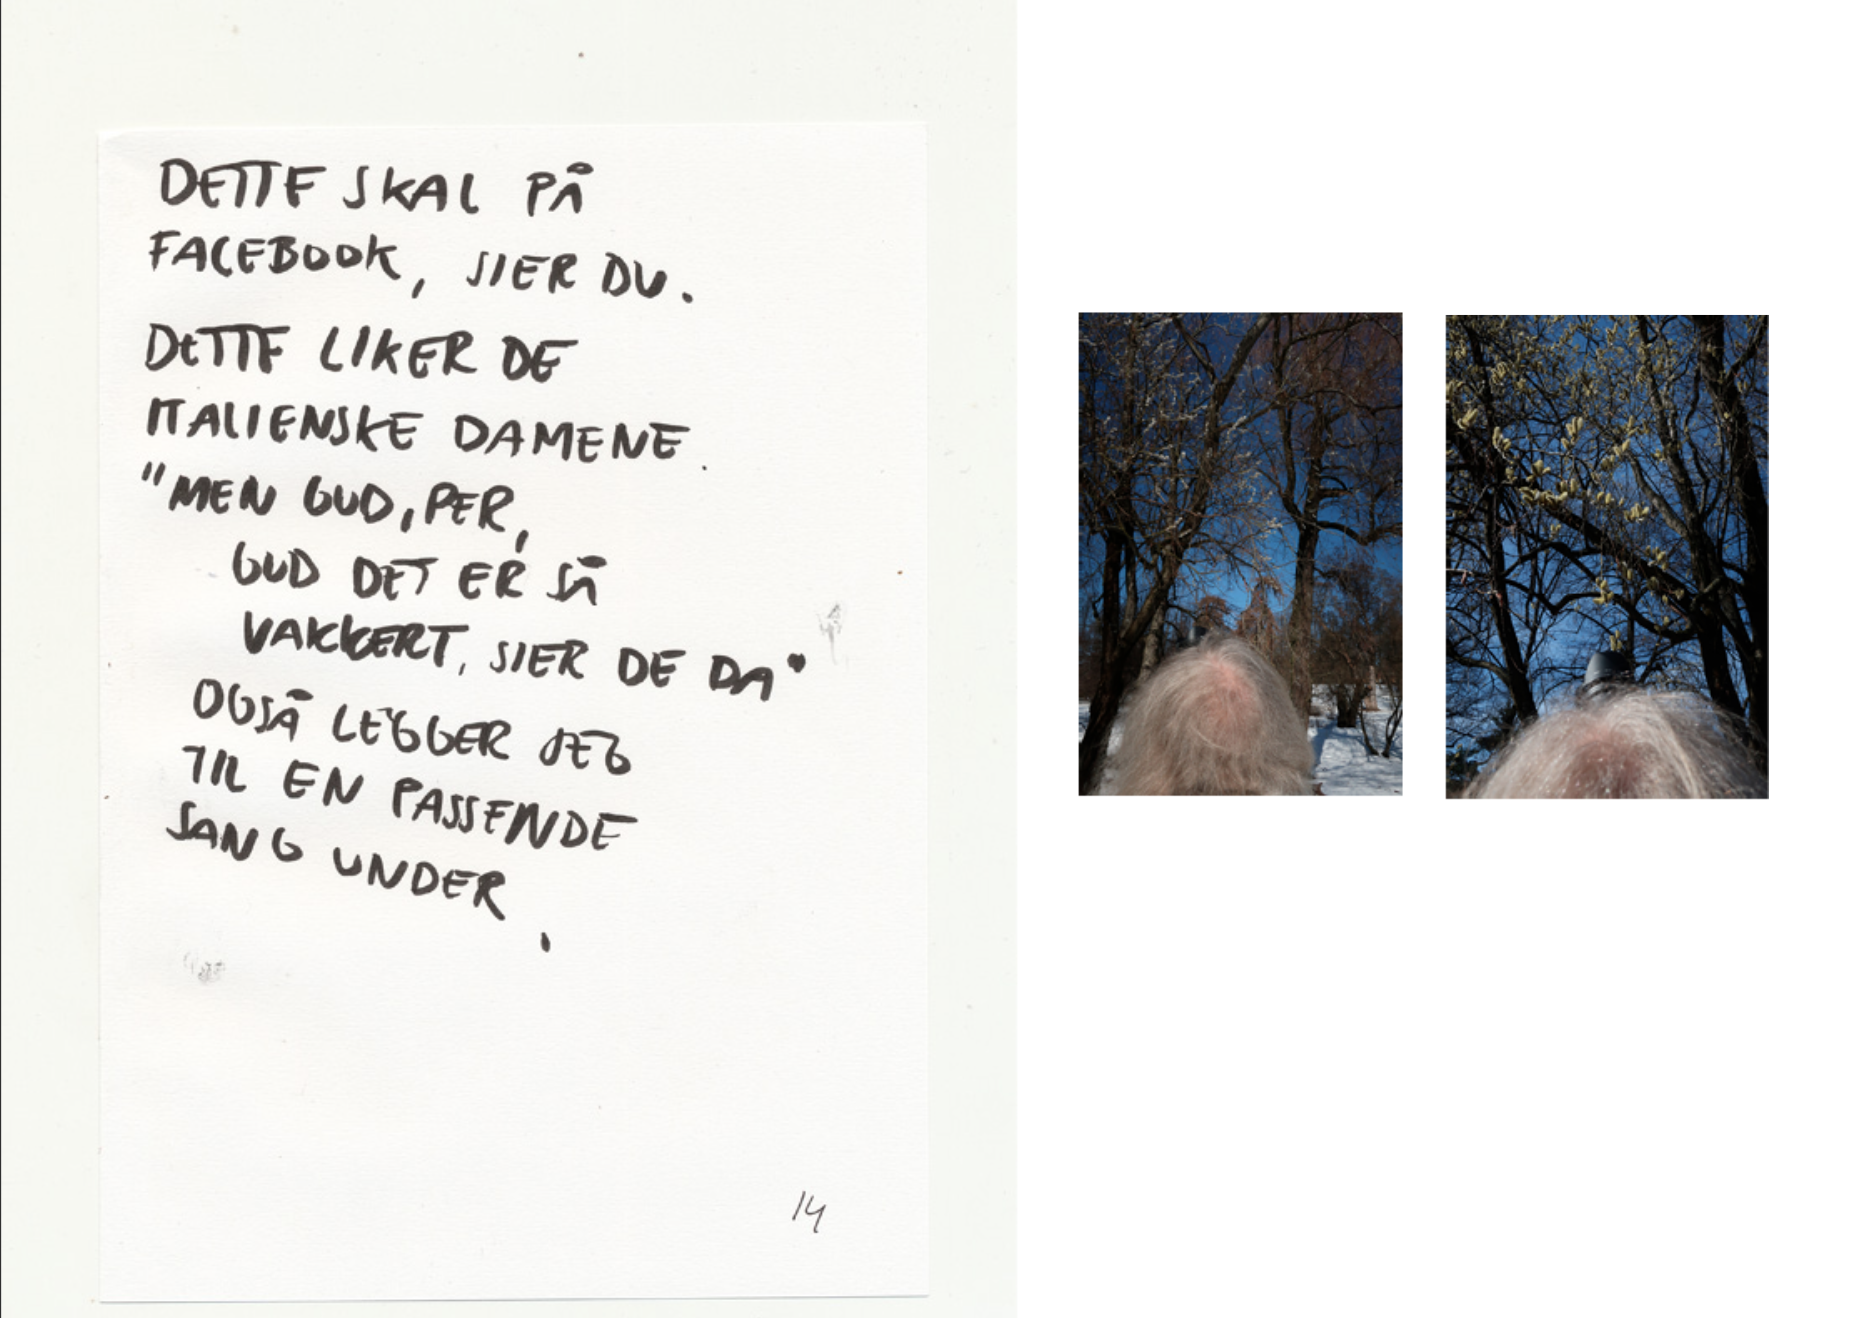 DETTE SKAL PÅ
FACEBOOK, SIER DU.
DETTE LIKER DE
ITALIENSKE DAMENE.
"MEN GUD, PER,
GUD DET ER SÅ
VAKKERT, SIER DE DA"
OGSÅ LEGGER JEG
TIL EN PASSENDE
SANG UNDER.
14